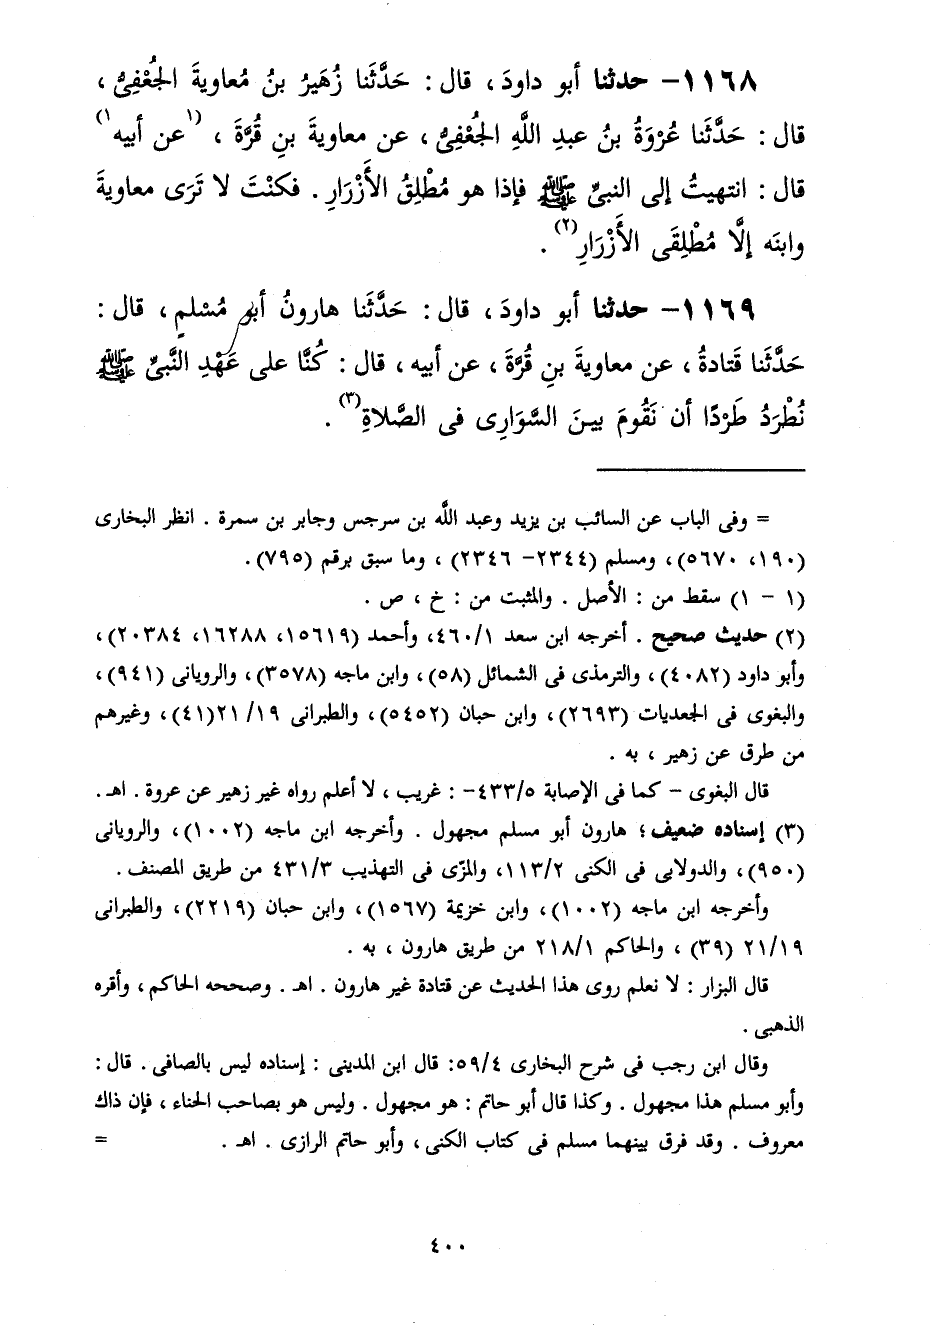 ١١٦٨- حدثنا أبو داودَ ، قال : حَدَّثَنا زُهَيرُ بنُ مُعاويةَ الجُعْفِىُّ ،
قال : حَدَّثَنا عُرْوَةُ بنُ عبدِ اللَّهِ الجُعْفِىُّ ، عن معاويةَ بنِ قُرَّةَ ، (١عن أبيه١)
قال : انتهيتُ إلى النبىِّ ﷺ فإذا هو مُطْلِقُ الأَزْرَارِ . فكنْتَ لا تَرَى معاويةَ
وابنَه إلَّا مُطْلِقَى الأَزْرَارِ(٢) .
١١٦٩- حدثنا أبو داودَ ، قال : حَدَّثَنا هارونُ أبو مُسْلمٍ ، قال :
حَدَّثَنا قَتادةُ ، عن معاويةَ بنِ قُرَّةَ ، عن أبيه ، قال : كُنَّا على عَهْدِ النَّبىِّ ﷺ
نُطْرَدُ طَرْدًا أن نَقُومَ بينَ السَّوَارِى فى الصَّلاةِ(٣) .
= وفى الباب عن السائب بن يزيد وعبد اللَّه بن سرجس وجابر بن سمرة . انظر البخارى
(١٩٠، ٥٦٧٠)، ومسلم (٢٣٤٤- ٢٣٤٦) ، وما سبق برقم (٧٩٥).
(١ - ١) سقط من : الأصل . والمثبت من : خ ، ص .
(٢) حديث صحيح . أخرجه ابن سعد ٤٦٠/١، وأحمد (١٥٦١٩، ١٦٢٨٨، ٢٠٣٨٤)،
وأبو داود (٤٠٨٢)، والترمذى فى الشمائل (٥٨)، وابن ماجه (٣٥٧٨)، والرويانى (٩٤١)،
والبغوى فى الجعديات (٢٦٩٣)، وابن حبان (٥٤٥٢)، والطبرانى ٢١/١٩(٤١)، وغيرهم
من طرق عن زهير ، به .
قال البغوى - كما فى الإصابة ٤٣٣/٥- : غريب ، لا أعلم رواه غير زهير عن عروة . اهـ .
(٣) إسناده ضعيف؛ هارون أبو مسلم مجهول . وأخرجه ابن ماجه (١٠٠٢)، والرويانى
(٩٥٠)، والدولابى فى الكنى ١١٣/٢، والمزّى فى التهذيب ٤٣١/٣ من طريق المصنف .
وأخرجه ابن ماجه (١٠٠٢)، وابن خزيمة (١٥٦٧)، وابن حبان (٢٢١٩)، والطبرانى
٢١/١٩ (٣٩) ، والحاكم ٢١٨/١ من طريق هارون ، به .
قال البزار : لا نعلم روى هذا الحديث عن قتادة غير هارون . اهـ . وصححه الحاكم ، وأقره
الذهبى .
وقال ابن رجب فى شرح البخارى ٥٩/٤: قال ابن المدينى : إسناده ليس بالصافى . قال :
وأبو مسلم هذا مجهول . وكذا قال أبو حاتم : هو مجهول . وليس هو بصاحب الحناء ، فإن ذاك
معروف . وقد فرق بينهما مسلم فى كتاب الكنى ، وأبو حاتم الرازى . اهـ . =
٤٠٠